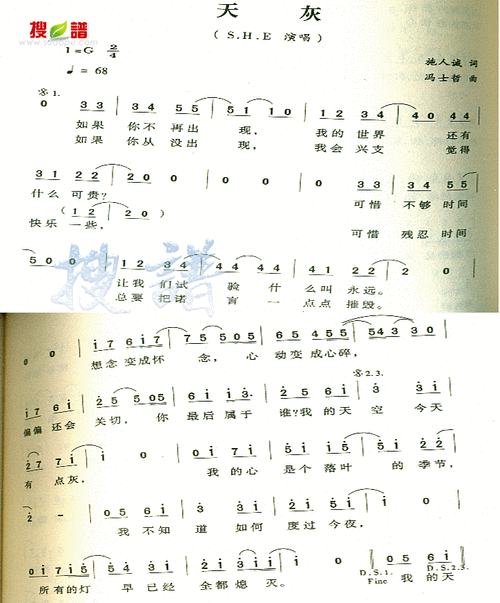 搜谱
www.sooopu.com
天 灰
( S.H.E 演唱 )
1=G 2/4
♩ = 68
施人诚 词
冯士哲 曲
𝄋1.
0 33 34 55 51 10 12 34 44
如果 你不 再出 现, 我的 世界 还有
如果 你从 没出 现, 我会 兴支 觉得
31 22 20 0 0 0 33 34 55
什么 可贵? 可惜 不够 时间
(12 20)
快乐 一些, 可惜 残忍 时间
500 12 34 44 44 41 22 2 0
让我 们试 验 什 么叫 永远。
总要 把诺 言 一 点点 摧毁。
搜谱
0 0 17 617 75 505 65 455 543 30
想念 变成怀 念, 心 动变 成心碎,
17 61 25 505 56 113 𝄋2.3. 3 31
偏偏 还会 关切, 你 最后 属于 谁?我的 天 空 今天
27 71 1 0 0 51 15 51 22
有 点灰, 我的 心 是个 落叶 的 季节,
2 - 0 5 61 3 31 25 51 1 -
我 不知 道 如何 度过 今夜,
01 715 54 31 25 51 1 0 05 61
所有的灯 早 已经 全都 熄 灭。 我 的天
D.S.1. Fine D.S.2.3.